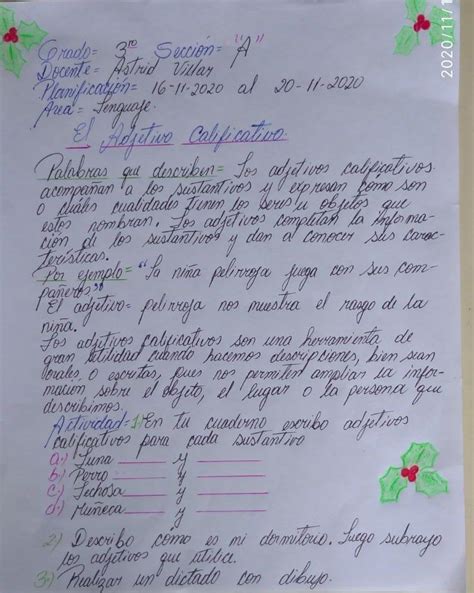 2020/11/1
Grado= 3ro Sección= "A"
Docente= Astrid Villar
Planificación= 16-11-2020 al 20-11-2020
Area= Lenguaje.
El Adjetivo Calificativo.
Palabras que describen= Los adjetivos calificativos
acompañan a los sustantivos y expresan como son
o cuáles cualidades tienen los seres u objetos que
estos nombran. Los adjetivos completan la informa-
ción de los sustantivos y dan a conocer sus carac-
terísticas.
Por ejemplo= "La niña pelirroja juega con sus com-
pañeros"
El adjetivo= pelirroja nos muestra el rasgo de la
niña.
Los adjetivos calificativos son una herramienta de
gran utilidad cuando hacemos descripciones, bien sean
orales o escritas, pues nos permiten ampliar la infor-
mación sobre el objeto, el lugar o la persona que
describimos.
Actividad= 1) En tu cuaderno escribo adjetivos
calificativos para cada sustantivo
a) Luna ______ y ______
b) Perro ______ y ______
c) Lechosa ______ y ______
d) Muñeca ______ y ______
2) Describo como es mi dormitorio. Luego subrayo
los adjetivos que utilice.
3) Realizar un dictado con dibujo.